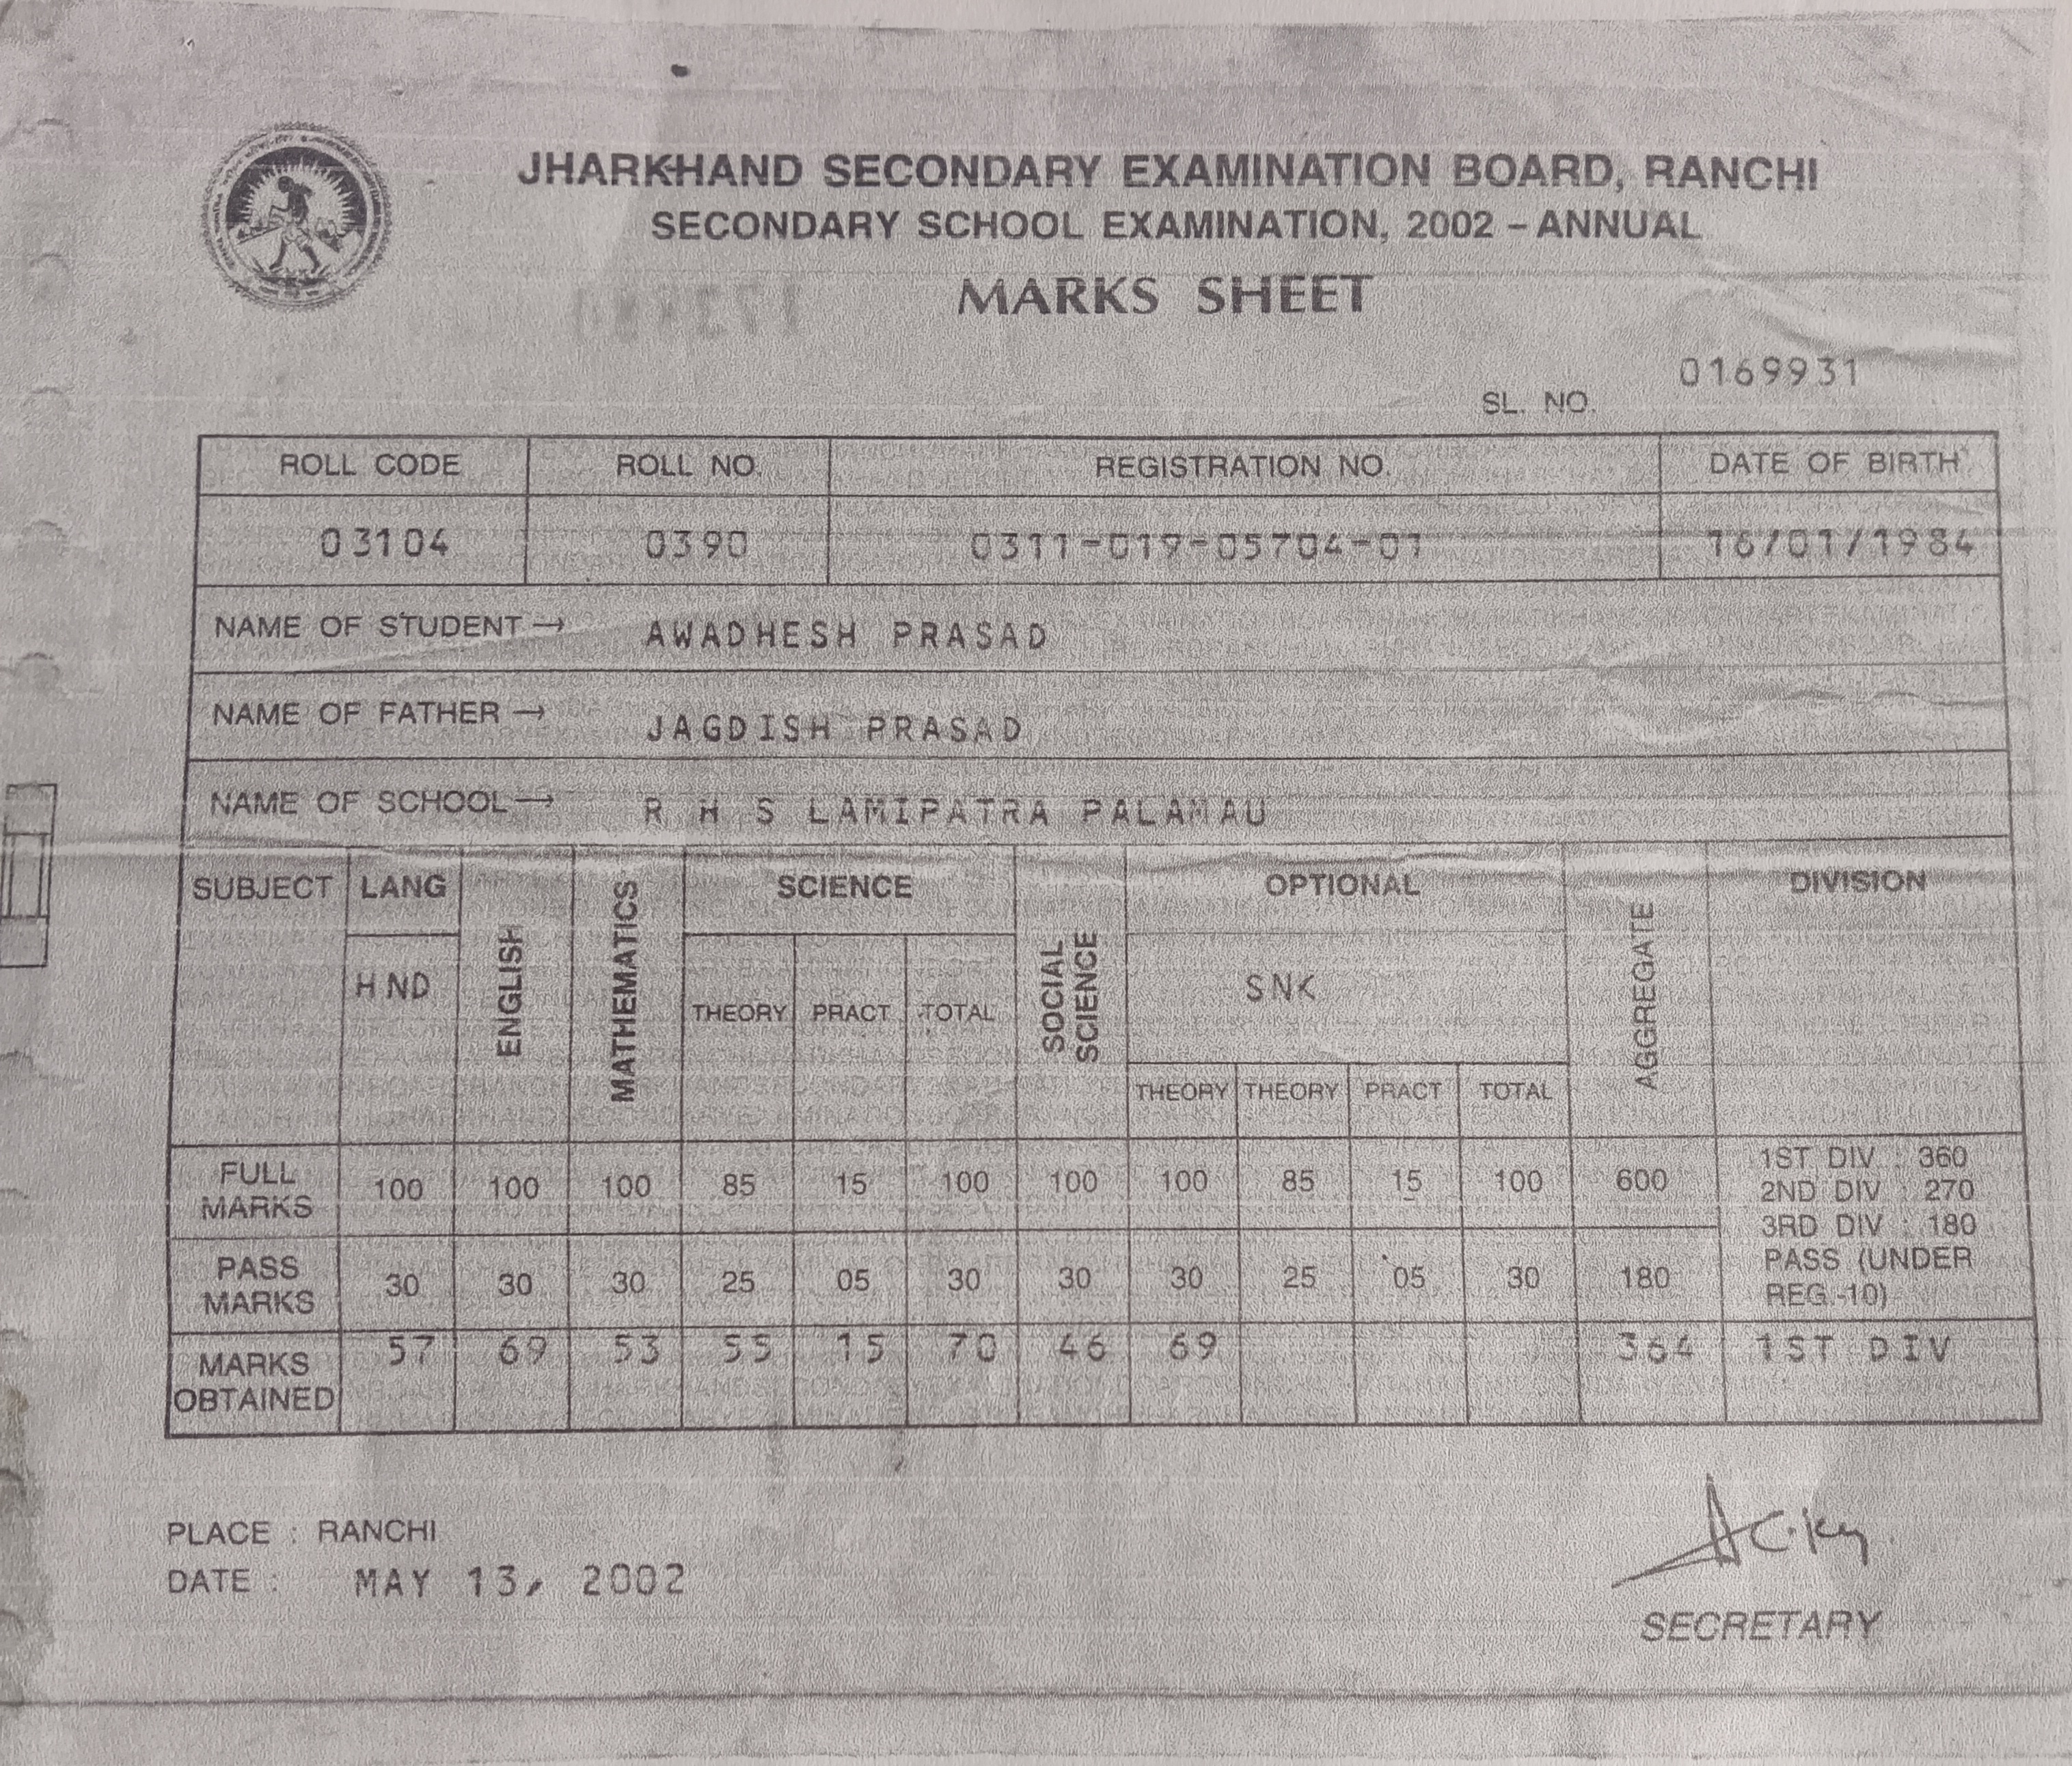 JHARKHAND SECONDARY EXAMINATION BOARD, RANCHI
SECONDARY SCHOOL EXAMINATION, 2002 – ANNUAL
MARKS SHEET
0169931
SL. NO.
ROLL CODE ROLL NO. REGISTRATION NO. DATE OF BIRTH
03104 0390 0311-019-05704-01 16/01/1984
NAME OF STUDENT → AWADHESH PRASAD
NAME OF FATHER → JAGDISH PRASAD
NAME OF SCHOOL → R H S LAMIPATRA PALAMAU
SUBJECT LANG ENGLISH MATHEMATICS SCIENCE SOCIAL SCIENCE OPTIONAL AGGREGATE DIVISION
HND THEORY PRACT TOTAL SNK
THEORY THEORY PRACT TOTAL
FULL MARKS 100 100 100 85 15 100 100 100 85 15 100 600 1ST DIV : 360
2ND DIV : 270
3RD DIV : 180
PASS MARKS 30 30 30 25 05 30 30 30 25 05 30 180 PASS (UNDER
REG.-10)
MARKS OBTAINED 57 69 53 55 15 70 46 69 364 1ST DIV
PLACE : RANCHI
DATE : MAY 13, 2002
SECRETARY